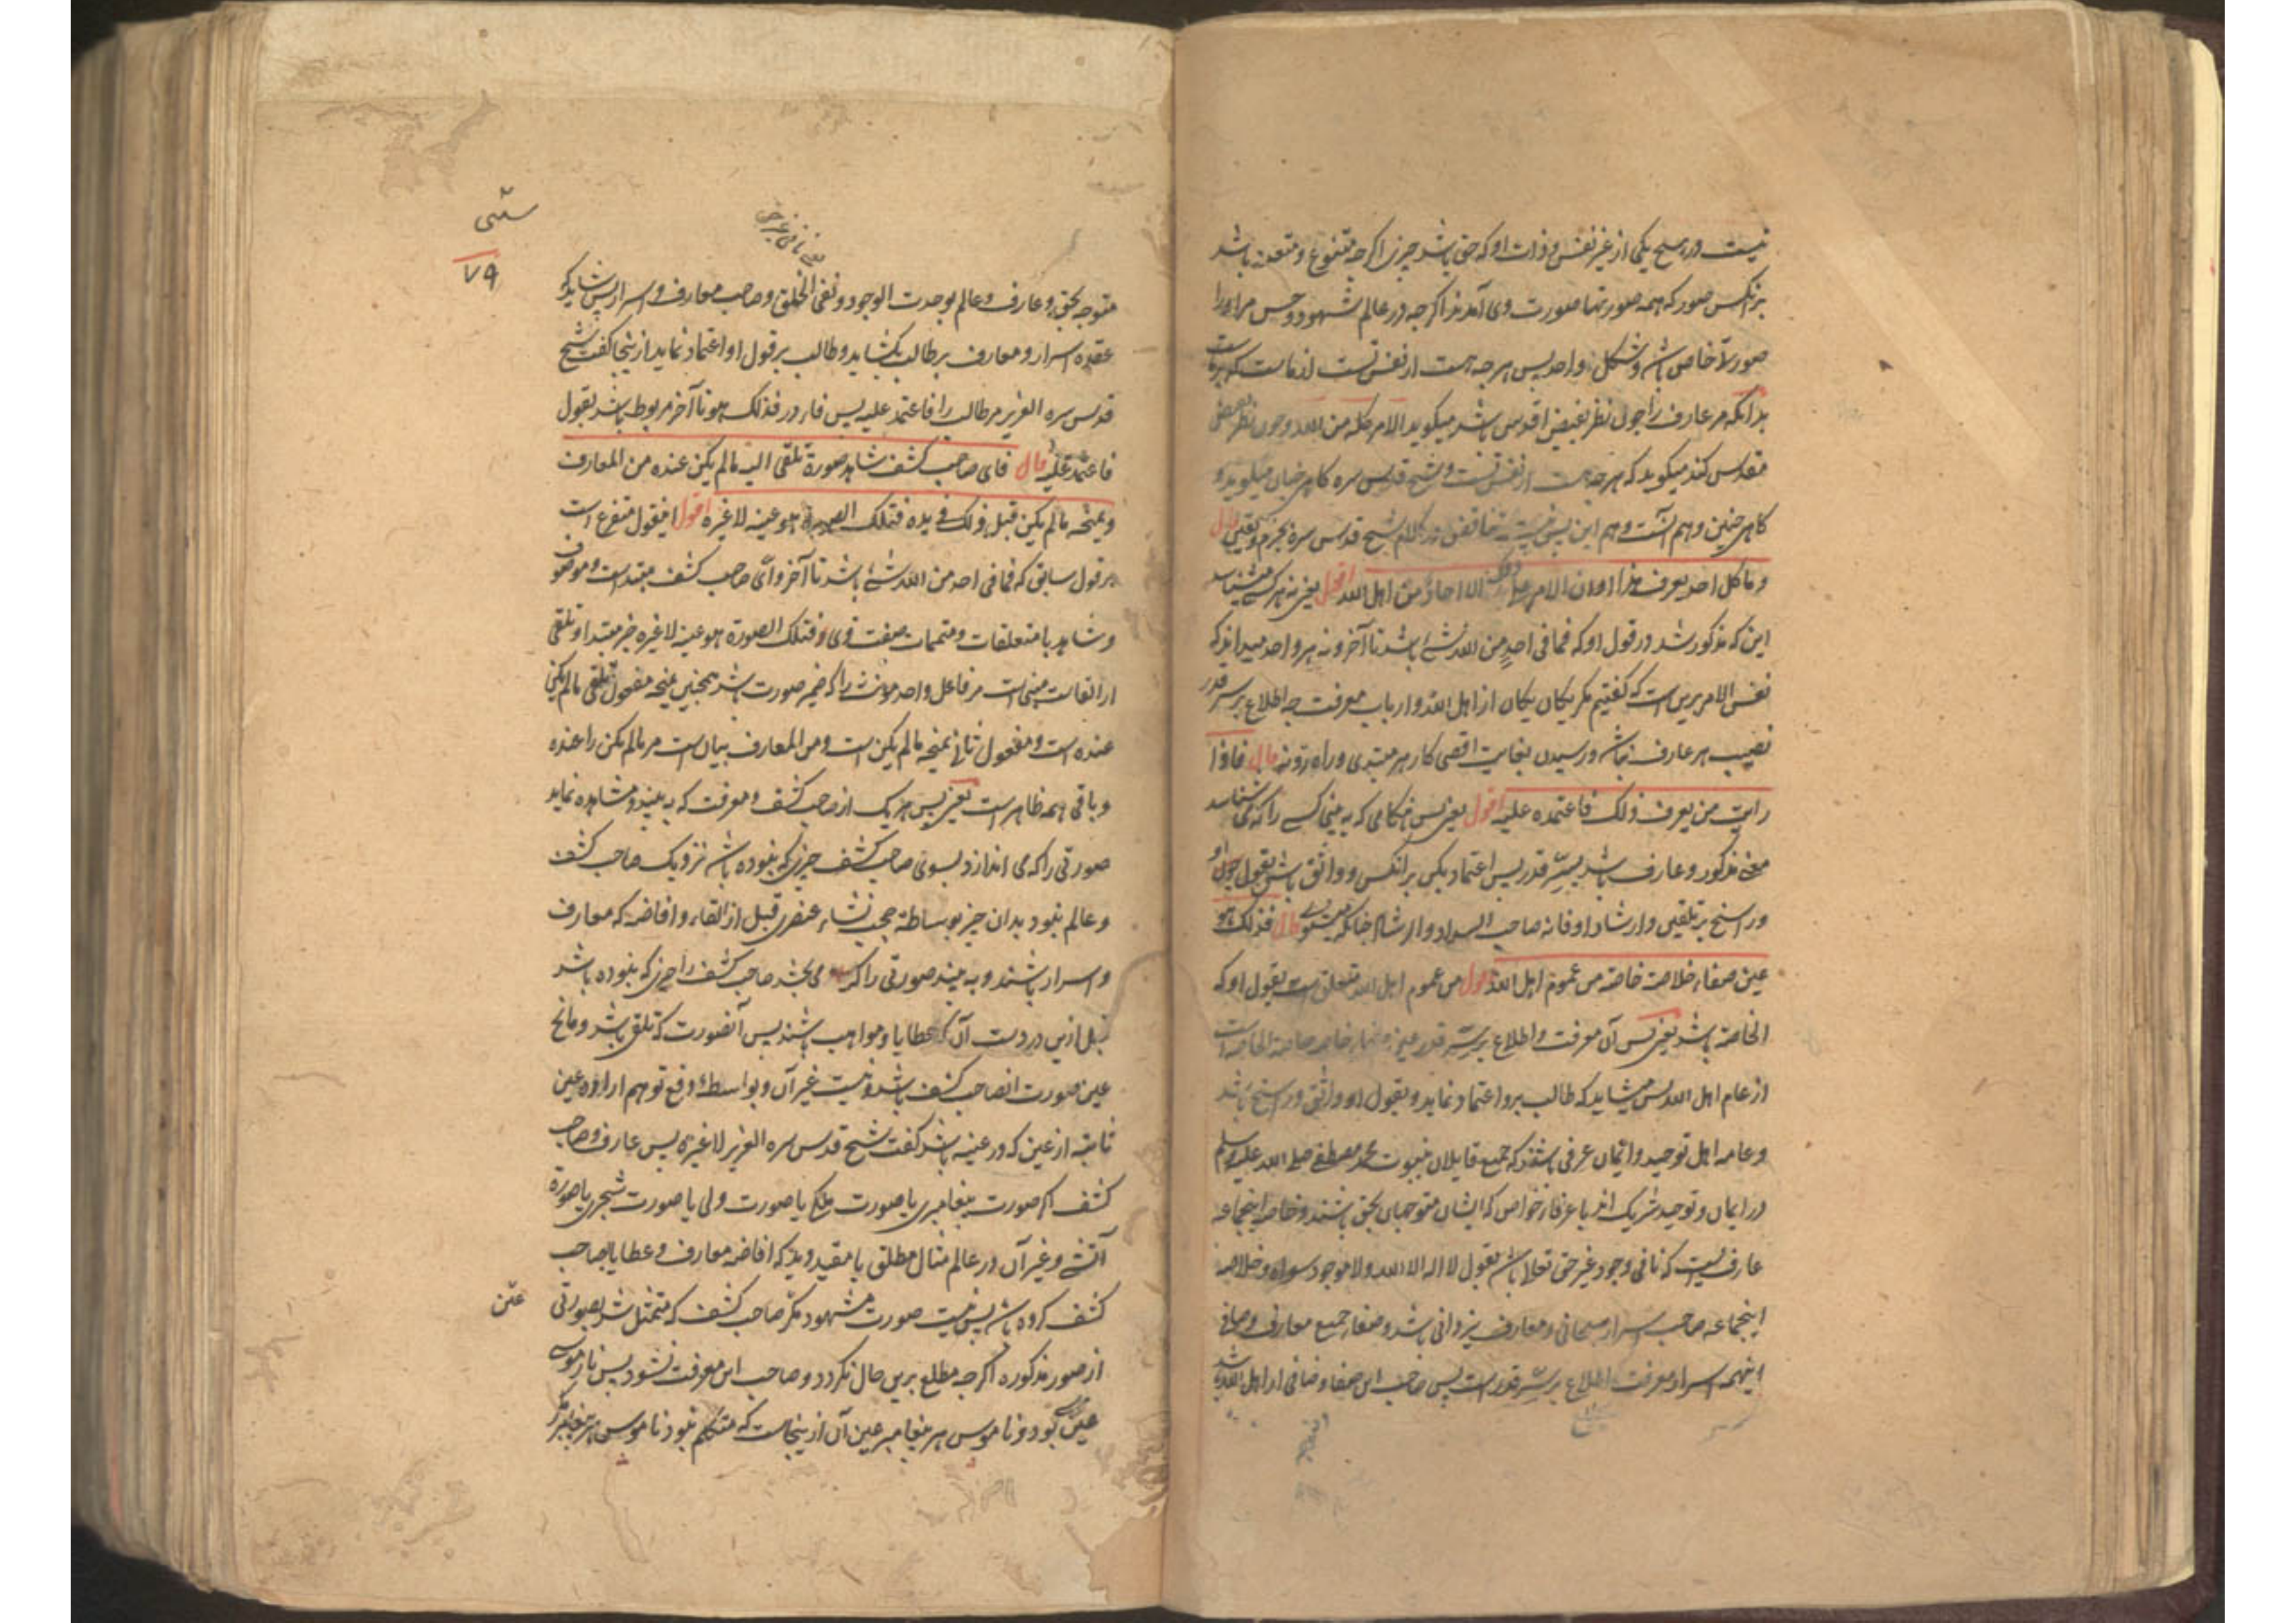 نیست در هیچ یکی از غیر نفس و ذات او که حق باشد چیزی اگرچه متنوع و متعدد باشد
برانکس صور که همه صورتها صورت وی آمدند اگرچه در عالم شهود و حس مر او را
صورتی خاص باشد و شکل واحد پس هرچه هست از نفس تست
بدانکه مر عارف را چون نظر بفیض اقدس باشد میکوید الامر کله من الله و چون نظر بفیض
مقدس کند میکوید که هرچه هست از نفس تست و شیخ قدس سره کاهی چنان میکوید و
کاهی چنین و هم آنست و هم این پس نیست تناقض در کلام شیخ قدس سره بجزم و یقین قال
وما کل احد یعرف هذا وان الامر علی ذلک الا احاد من اهل الله اقول یعنی نه هر کسی میشناسد
این که مذکور شد در قول او که فما فی احد من الله شیء باشد تا آخر و نه هر واحد میداند که
نفس الامر برین است که کفتیم مکر یکان یکان از اهل الله و ارباب معرفت چه اطلاع بر سر قدر
نصیب هر عارف نباشد و رسیدن بغایت اقصی کار هر مبتدی و راه رو نه قال فاذا
رایت من یعرف ذلک فاعتمد علیه اقول یعنی پس هنکامی که به بینی کسی را که می شناسد
معنی مذکور و عارف باشد بسر قدر پس اعتماد بکن برانکس و واثق باش بقول او
و راسخ بر تلقین و ارشاد او فانه صاحب السداد والارشاد چنانکه میشنوی قال فذلک هو
عین صفاء خلاصة خاصة من عموم اهل الله اقول من عموم اهل الله متعلق است بقول او که
الخاصة باشد یعنی پس آن معرفت و اطلاع بر سر قدر عین صفاء خلاصه خاصة الخاصه است
از عام اهل الله پس میشاید که طالب برو اعتماد نماید و بقول او واثق و راسخ باشد
و عامه اهل توحید و ایمان عرفی باشند که جمیع قایلان نبوت محمد مصطفی صلی الله علیه وسلم
در ایمان و توحید شریک اند با عرفاء خواص که ایشان متوجهان بحق باشند و خاصه اینجماعه
عارفیست که نافی وجود غیر حق تعالی باشد بقول لا اله الا الله ولا موجود سواه و خلاصه
اینجماعه صاحب اسرار سبحانی و معارف یزدانی باشد و صفاء جمیع معارف و صافی
اینهمه اسرار معرفت اطلاع بر سر قدر است پس صاحب این صفا و صافی از اهل الله باشد
ستی
۷۹
متوجه بحق و عارف و عالم بوحدت الوجود و نفی الخلق و صاحب معارف و اسرار پس شاید که
عقده اسرار و معارف بر طالب بکشاید و طالب بر قول او اعتماد نماید ازینجا کفت شیخ
قدس سره العزیز مر طالب را فاعتمد علیه پس فاء در فذلک هو تا آخر مربوط باشد بقول
فاعتمد علیه قال فای صاحب کشف شاهد صورة تلقی الیه مالم یکن عنده من المعارف
و یمنحه مالم یکن قبل ذلک فی یده فتلک الصورة هو عینه لا غیره اقول اینقول متفرع است
بر قول سابق که فما فی احد من الله شیء باشد تا آخر و ای صاحب کشف مبتداست و موصوف
و شاهد با متعلقات و متممات صفت وی و فتلک الصورة هو عینه لا غیره خبر مبتدا و تلقی
از القاست مبنی است مر فاعل واحد مؤنث را که ضمیر صورت باشد همچنین یمنحه مفعول تلقی مالم یکن
عنده است و مفعول ثانی یمنحه مالم یکن است و من المعارف بیان است مر مالم یکن را عنده
و باقی همه ظاهر است یعنی پس هر یک از صاحب کشف و معرفت که به بیند و مشاهده نماید
صورتی را که می اندازد بسوی صاحب کشف چیزی که نبوده باشد نزدیک صاحب کشف
و عالم نبود بدان چیز بوساطه حجب نشاء عنصری قبل از القاء و افاضه که معارف
و اسرار باشند و به بیند صورتی را که می بخشد صاحب کشف را چیزی که نبوده باشد
قبل ازین در دست آن که عطایا و مواهب باشند پس آنصورت که تلقی باشد و مانح
عین صورت انصاحب کشف باشد و نیست غیر آن و بواسطه دفع توهم اراده عین
ثابته از عین که در عینه باشد کفت شیخ قدس سره العزیز لا غیره پس عارف و صاحب
کشف اکر صورت پیغامبری یا صورت ملکی یا صورت ولی یا صورت شجری یا صورة
آتشی و غیر آن در عالم مثال مطلق یا مقید دید که افاضه معارف و عطایا بصاحب
کشف کرده باشد پس نیست صورت مشهود مکر صاحب کشف که متمثل شد بصورتی
از صور مذکوره اکرچه مطلع برین حال نکردد و صاحب این معرفت نشود پس نار موسی
عین موسی بود و ناموس هر پیغامبر عین آن ازینجاست که متکلم نبود ناموس هر پیغامبر مکر